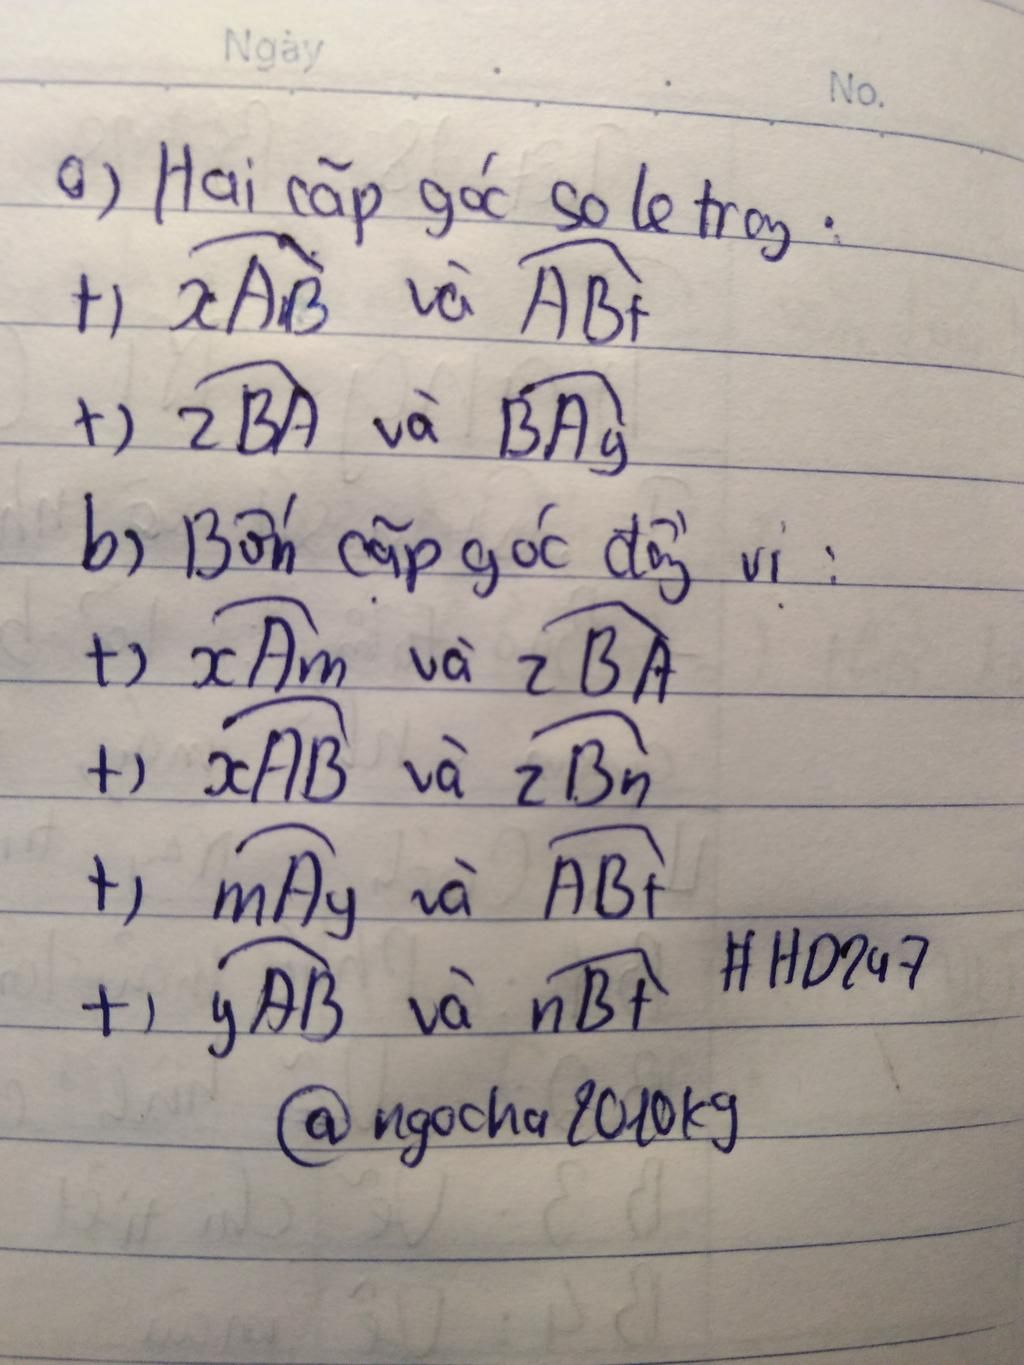 Ngày
No.
a) Hai cặp góc so le trong:
+) xAB và ABt
+) zBA và BAy
b) Bốn cặp góc đồng vị:
+) xAm và zBA
+) xAB và zBn
+) mAy và ABt
+) yAB và nBt #HD247
@ngocha2010kg